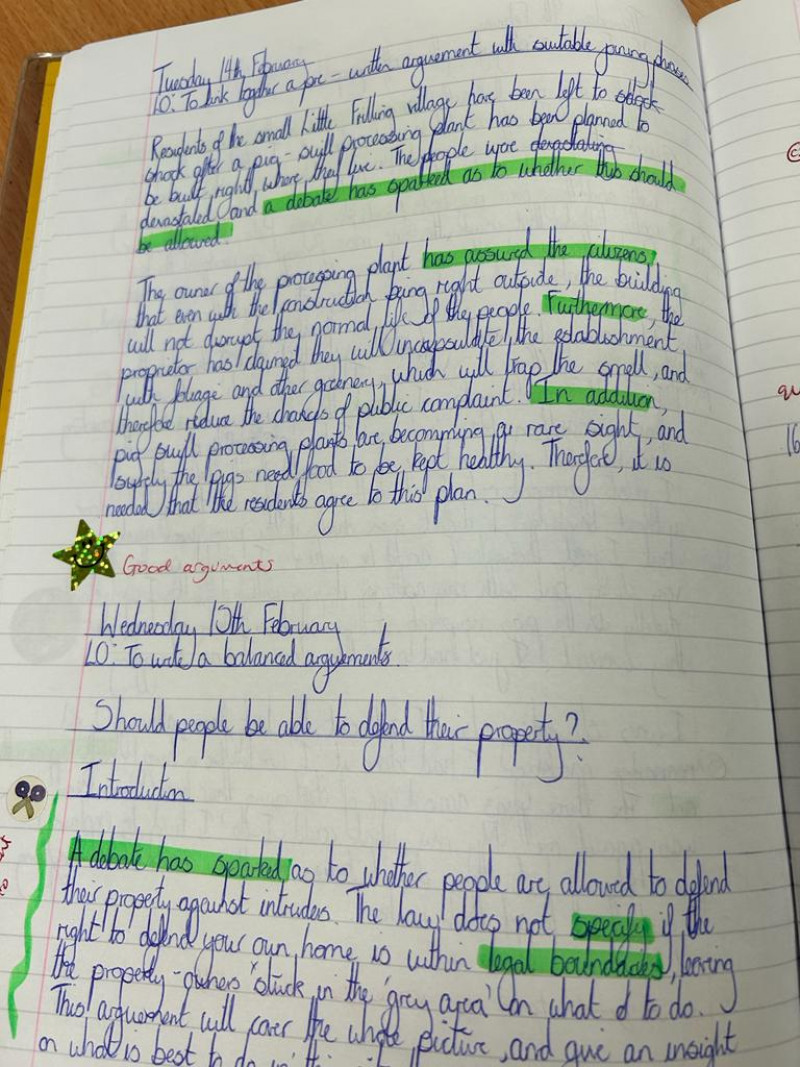 Tuesday 14th February
LO: To link together a pre-written arguement with suitable joining phrases
Residents of the small Little Frilling village have been left to shock
shock after a pig-swill processing plant has been planned to
be built right where they live. The people were devastating
devastated and a debate has sparked as to whether this should
be allowed.
The owner of the processing plant has assured the citizens
that even with the construction being right outside, the building
will not disrupt the normal life of the people. Furthermore, the
proprietor has claimed they will incapsulate the establishment
with foliage and other greenery, which will trap the smell, and
therefore reduce the changes of public complaint. In addition,
pig swill processing plants are becomming a rare sight, and
surely the pigs need food to be kept healthy. Therefore, it is
needed that the residents agree to this plan.
Good arguments
Wednesday 15th February
LO: To write a balanced arguements.
Should people be able to defend their property?
Introduction
A debate has sparked as to whether people are allowed to defend
their property against intruders. The law does not specify if the
right to defend your own home is within legal boundaries, leaving
the property-owners stuck in the 'grey area' on what to do.
This arguement will cover the whole picture, and give an insight
on what is best to do in this